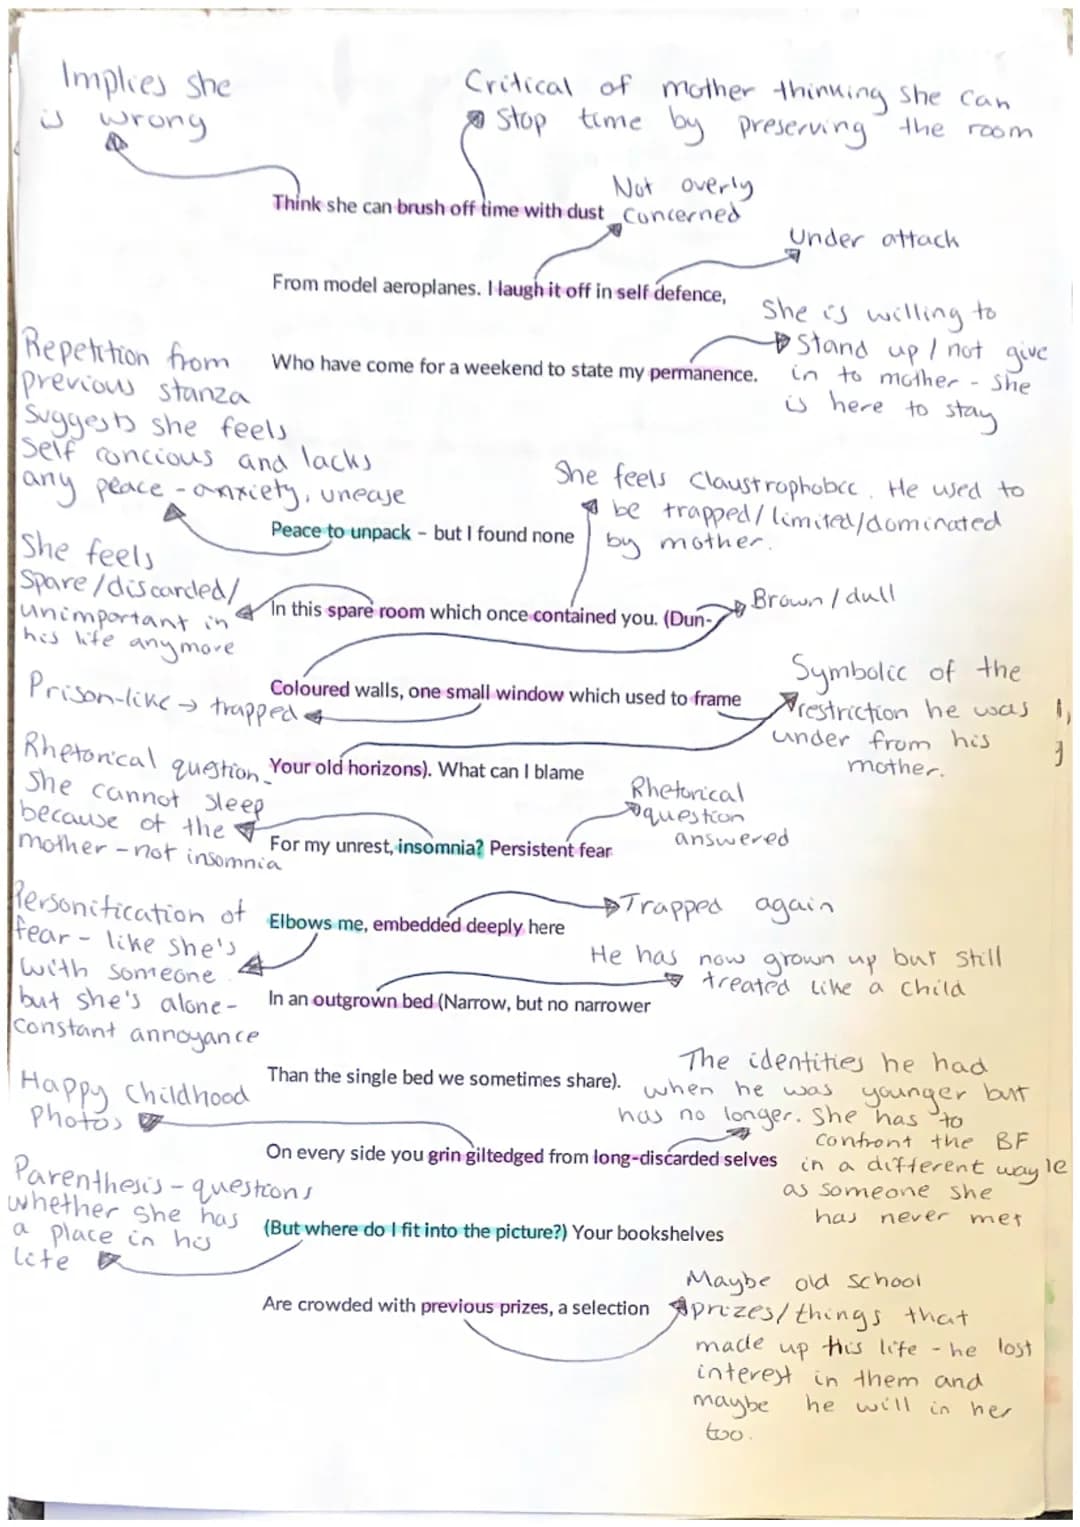 Implies she
is wrong
Critical of mother thinking she can
stop time by preserving the room
Think she can brush off time with dust
Not overly
Concerned
Under attack
From model aeroplanes. I laugh it off in self defence,
She is willing to
Stand up / not give
in to mother - she
is here to stay
Who have come for a weekend to state my permanence.
Repetition from
previous stanza
Suggests she feels
Self concious and lacks
any peace - anxiety, unease
She feels Claustrophobic. He used to
be trapped/limited/dominated
by mother.
Peace to unpack – but I found none
She feels
Spare/discarded/
unimportant in
his life anymore
In this spare room which once contained you. (Dun-
Brown / dull
Coloured walls, one small window which used to frame
Prison-like → trapped
Symbolic of the
restriction he was
under from his
mother.
Your old horizons). What can I blame
Rhetorical question -
She cannot sleep
because of the
mother - not insomnia
Rhetorical
question
answered
For my unrest, insomnia? Persistent fear
Personification of
fear - like she's
with someone
but she's alone -
constant annoyance
Trapped again
Elbows me, embedded deeply here
He has now grown up but still
treated like a child
In an outgrown bed (Narrow, but no narrower
Than the single bed we sometimes share).
The identities he had
when he was younger but
has no longer. She has to
confront the BF
in a different way
as someone she
has never met
Happy Childhood
Photos
On every side you grin giltedged from long-discarded selves
le
Parenthesis - questions
whether she has
a place in his
life
(But where do I fit into the picture?) Your bookshelves
Are crowded with previous prizes, a selection
Maybe old school
prizes/things that
made up this life - he lost
interest in them and
maybe he will in her
too.